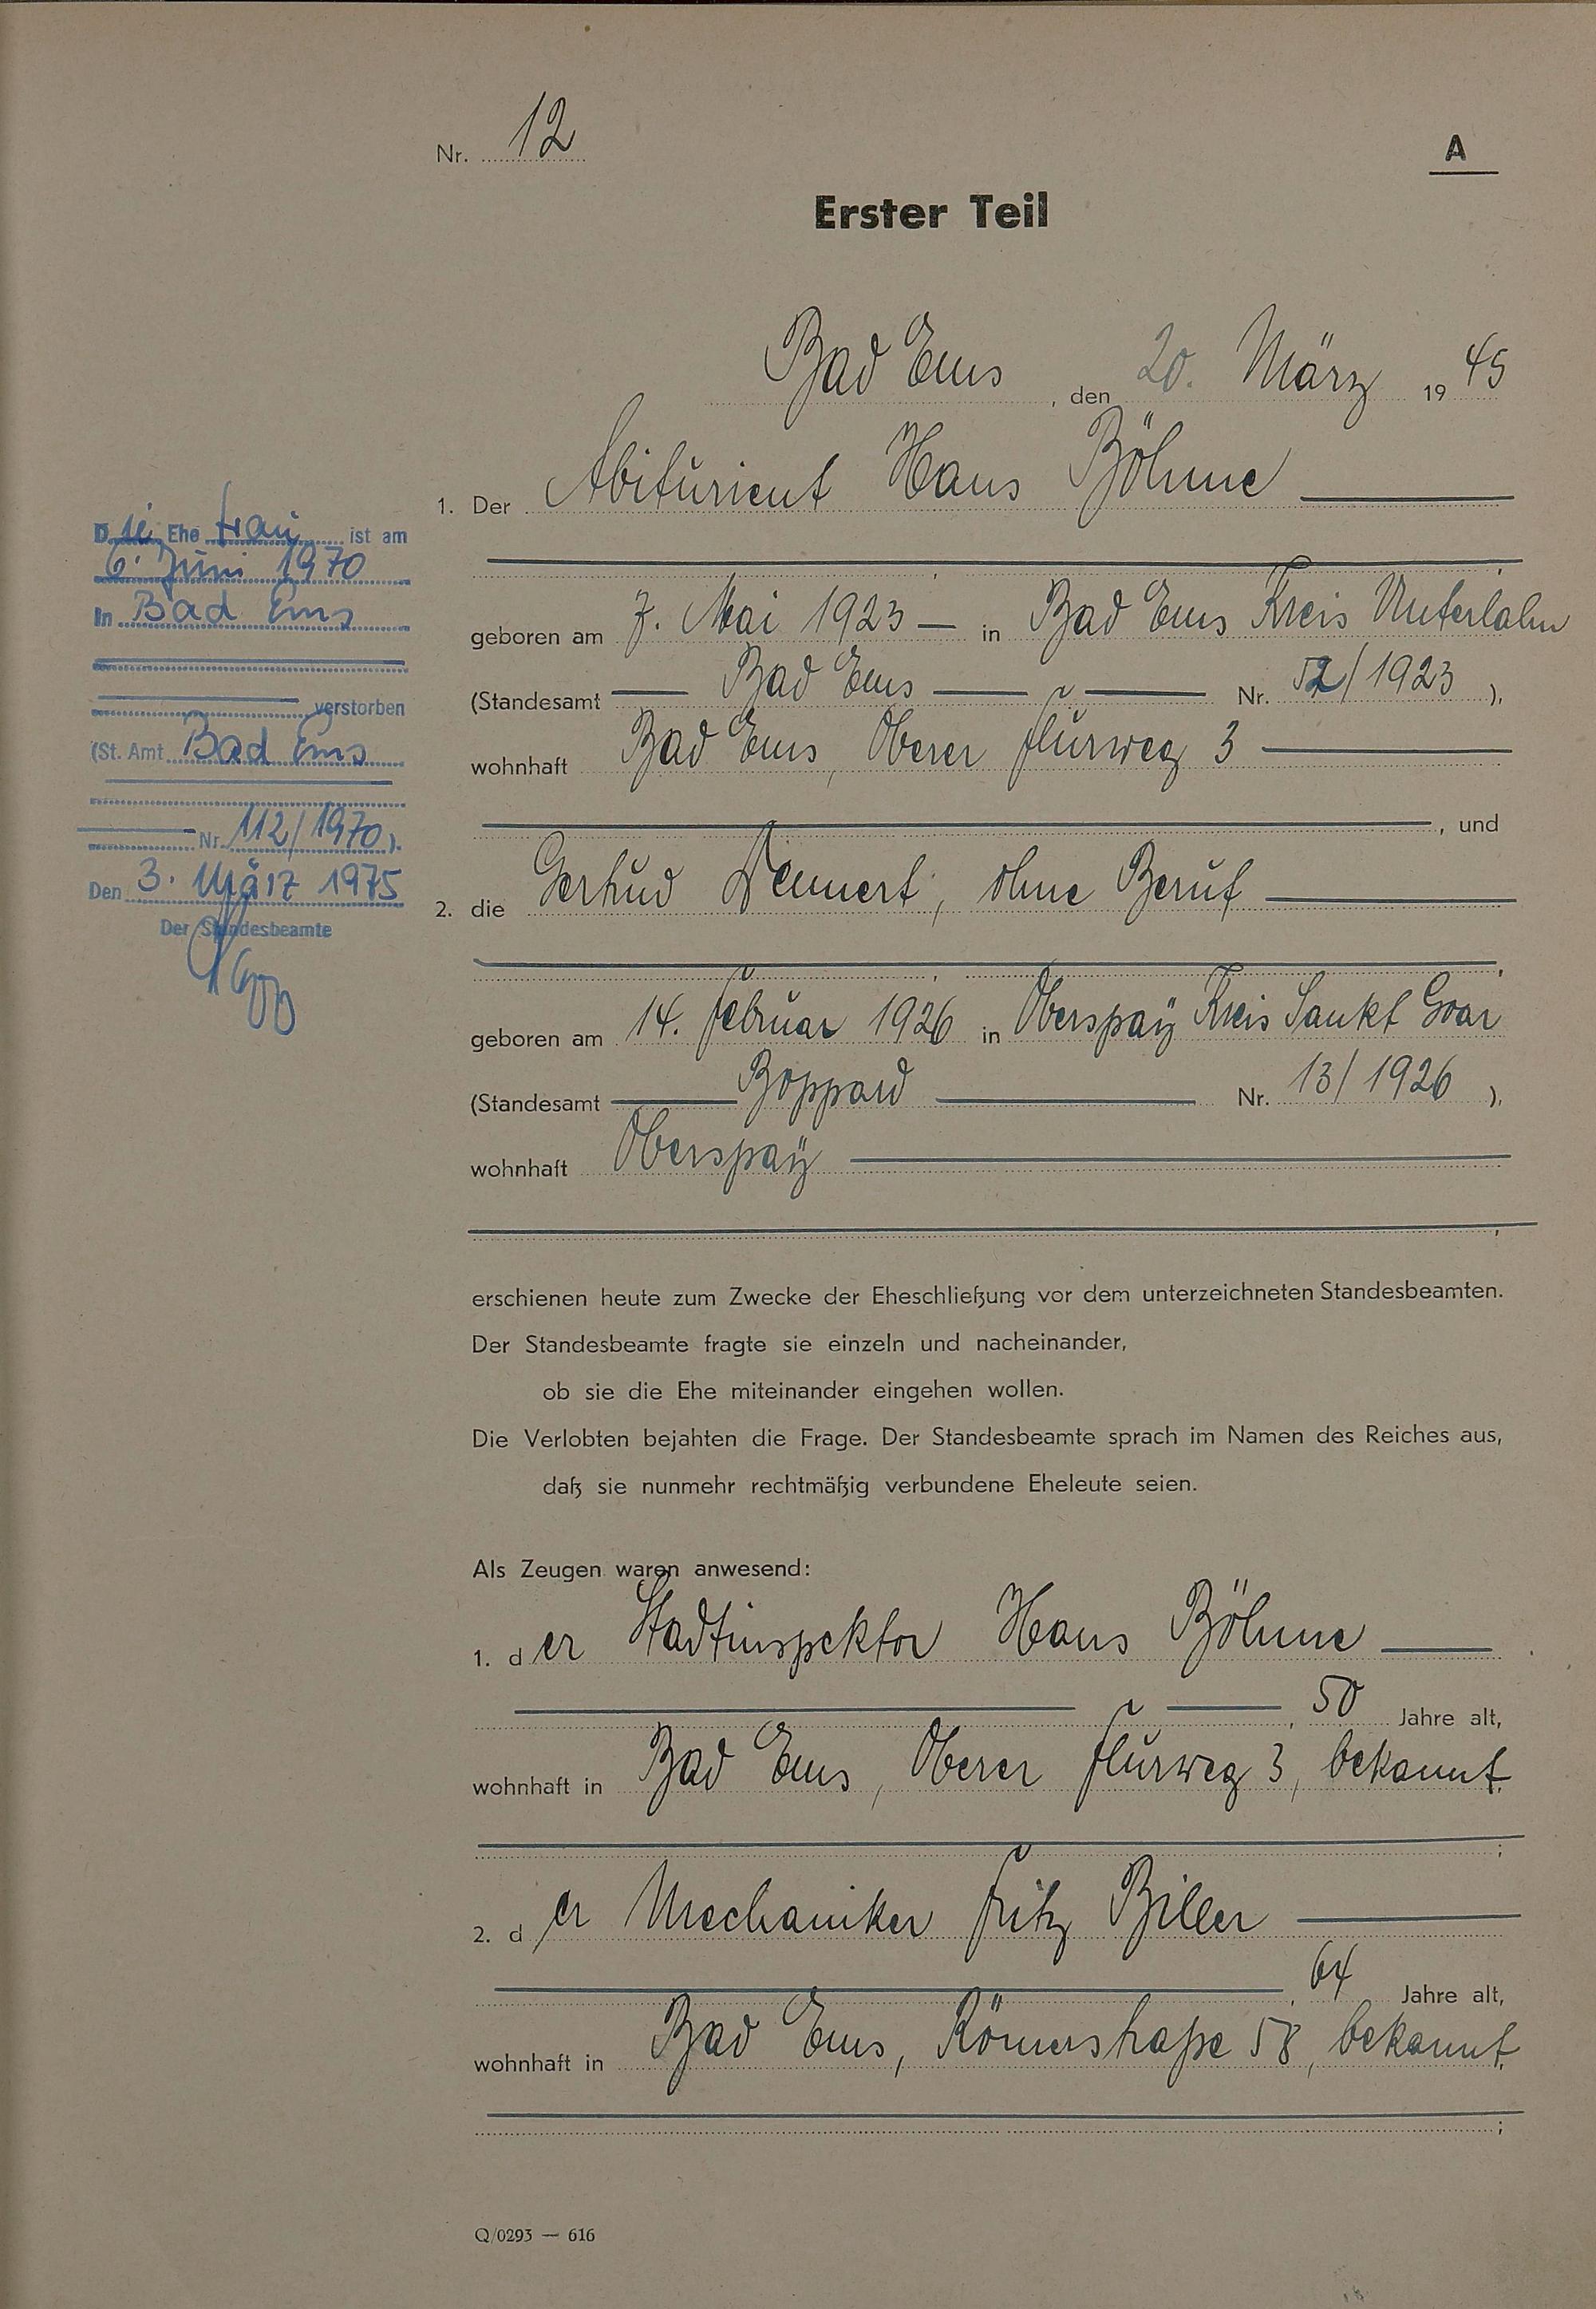 Nr. 12
A
Erster Teil
Bad Ems, den 20. März 1945
1. Der Abiturient Hans Böhme
geboren am 7. Mai 1923 in Bad Ems Kreis Unterlahn
(Standesamt Bad Ems Nr. 52/1923),
wohnhaft Bad Ems, Oberer Flurweg 3
, und
2. die Gertrud Dennert, ohne Beruf
,
geboren am 14. Februar 1926 in Oberspay Kreis Sankt Goar
(Standesamt Boppard Nr. 13/1926),
wohnhaft Oberspay
,
erschienen heute zum Zwecke der Eheschließung vor dem unterzeichneten Standesbeamten.
Der Standesbeamte fragte sie einzeln und nacheinander,
ob sie die Ehe miteinander eingehen wollen.
Die Verlobten bejahten die Frage. Der Standesbeamte sprach im Namen des Reiches aus,
daß sie nunmehr rechtmäßig verbundene Eheleute seien.
Als Zeugen waren anwesend:
1. der Stadtinspektor Hans Böhme
, 50 Jahre alt,
wohnhaft in Bad Ems, Oberer Flurweg 3, bekannt
;
2. der Mechaniker Fritz Biller
, 64 Jahre alt,
wohnhaft in Bad Ems, Römerstraße 58, bekannt
;
Q/0293 — 616
Die Ehefrau ist am
6. Juni 1970
in Bad Ems
verstorben
(St. Amt Bad Ems
Nr. 112/1970).
Den 3. März 1975
Der Standesbeamte